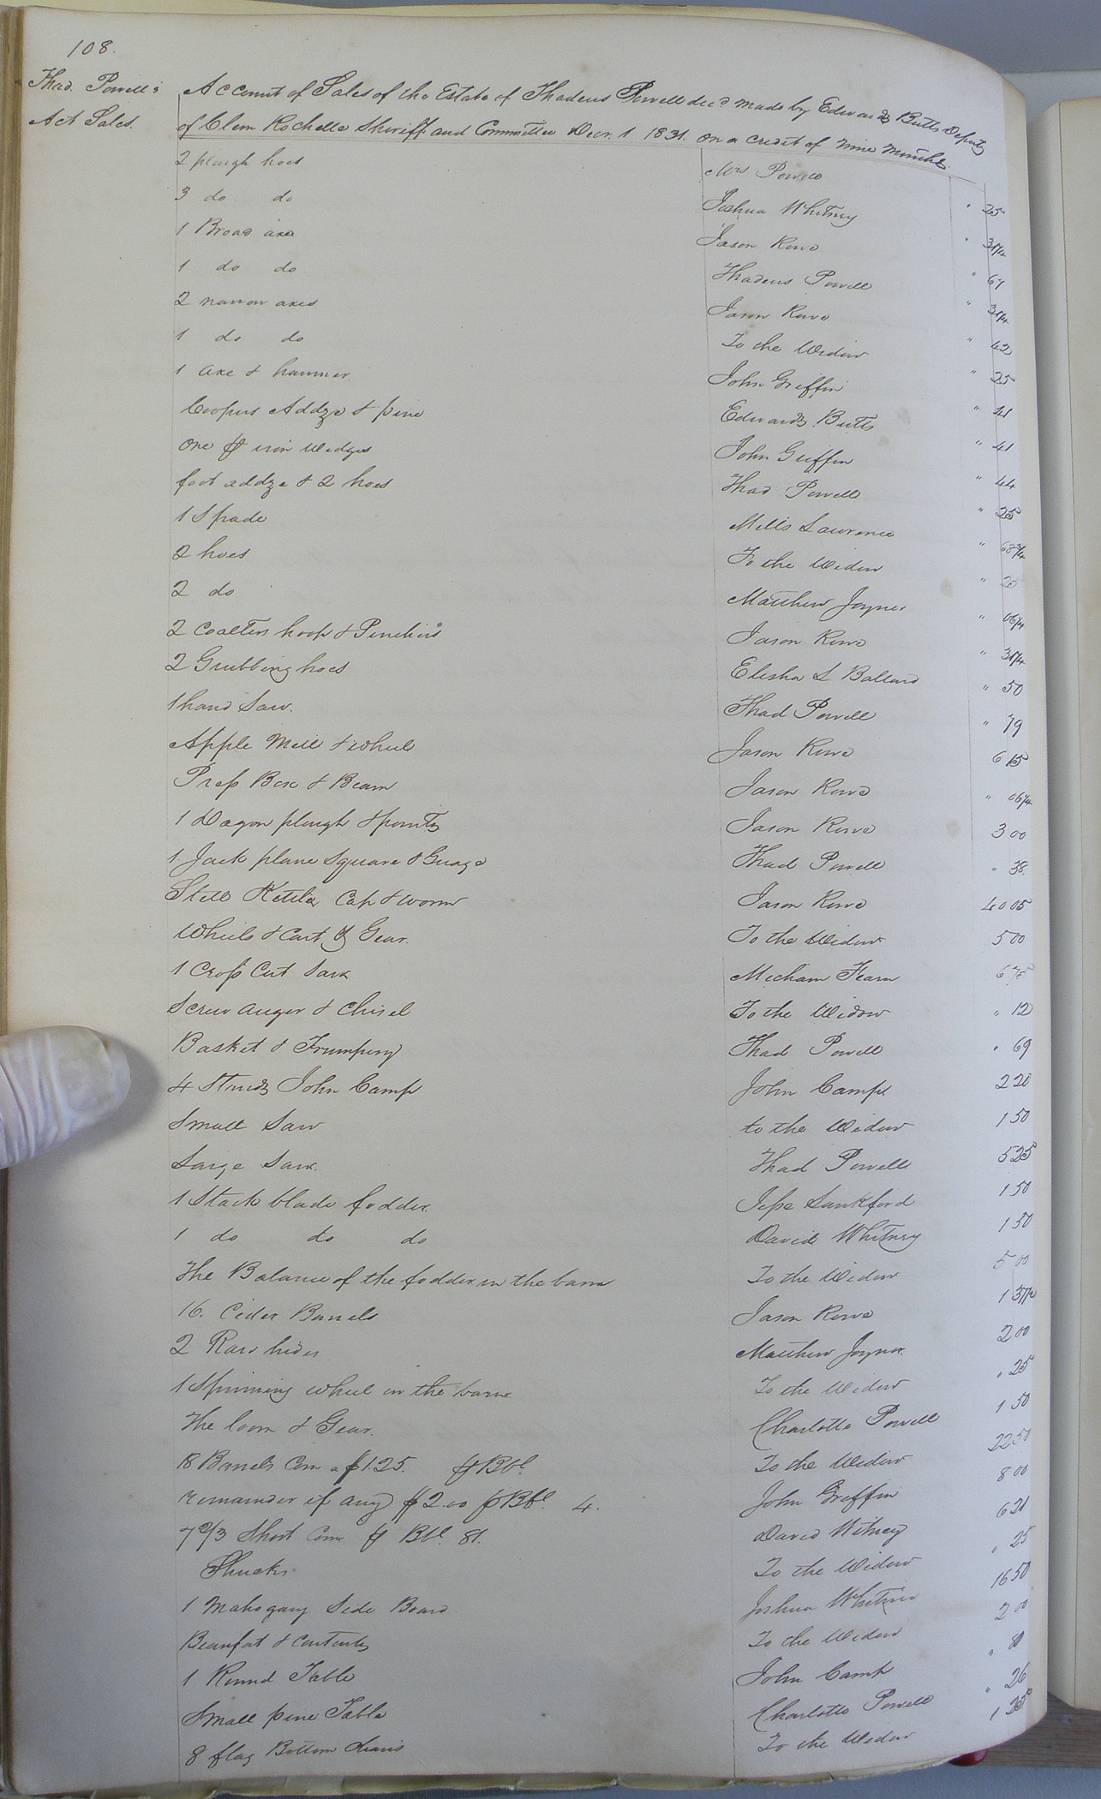 108.
Thad. Powell's Account of Sales of the Estate of Thadeus Powell decd made by Edwards Butts Deputy
Act Sales. of Clem Rochelle Sheriff and Committee Decr. 1 1831. on a credit of nine months.
2 plough hoes Mrs Powell " 25
3 do do Joshua Whitney " 31¼
1 Broad axe Jason Rowe " 67
1 do do Thadeus Powell " 31¼
2 narrow axes Jason Rowe " 42
1 do do To the Widow " 25
1 axe & hammer John Griffin " 21
Coopers Addze & Edwards Butts " 41
One pr iron Wedges John Griffin " 44
foot addze & 2 hoes Thad Powell " 25
1 Spade Mills Lawrence " 68¾
2 hoes To the Widow " 20
2 do Matthew Joyner " 06¼
2 hoop & Jason Rowe " 31¼
2 Grubbing hoes Elisha L Ballard " 50
1 hand Saw. Thad Powell " 79
Apple Mill & wheel Jason Rowe 6 15
Press Box & Beam Jason Rowe " 06¼
1 Dagon plough & points Jason Rowe 3 00
1 Jack plane Square & Guage Thad Powell " 38
Still Kettle Cap & worm Jason Rowe 40 05
Wheels & Cart & Gear. To the Widow 5 00
1 Cross Cut Saw Mecham Fearn 6 75
Screw auger & Chisel To the Widow " 12
Basket & Trumpery Thad Powell " 69
4 Stands John Camp John Camp 2 20
Small Saw to the Widow 1 50
Large Saw. Thad Powell 5 25
1 Stack blade fodder Jesse Lankford 1 50
1 do do do David Whitney 1 50
The Balance of the fodder in the barn To the Widow 5 00
16. Cider Barrels Jason Rowe 1 37½
2 Raw hides Matthew Joyner. 2 00
1 Spinning wheel in the barn To the Widow " 25
The loom & Gear. Charlotte Powell 1 50
18 Barrels Corn a $1.25. p Bbl. To the Widow 22 50
remainder if any $2.00 p Bbl. 4. John Griffin 8 00
7 2/3 Short Corn p Bbl. 81. David Witney 6 21
Shucks. To the Widow " 25
1 Mahogany Side Board Joshua Whitnie 16 50
Beaufat & Contents To the Widow 2 00
1 Round Table John Camp " 80
Small pine Table Charlotte Powell " 26
8 flag Bottom chairs To the Widow 1 25